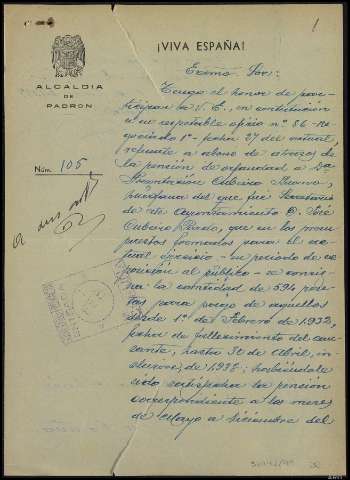 1
¡VIVA ESPAÑA!
ALCALDIA
DE
PADRON
Núm. 105
Excmo. Sor:
Tengo el honor de par-
ticipar a V. E., en contestación
a su respetable oficio nº 86 - Ne-
gociado 1º - fecha 27 del actual,
relativo a abono de atrasos de
la pensión de orfandad a Dª
Presentación Cubeiro
huérfana del que fué Secretario
de este Ayuntamiento D. José
Cubeiro Pardo, que en los presu-
puestos formados para el ac-
tual ejercicio - en período de ex-
posición al público - se consig-
na la cantidad de 594 pese-
tas para pago de aquellos
desde 1º de Febrero de 1932,
fecha de fallecimiento del cau-
sante, hasta 30 de Abril, in-
clusive, de 1932; habiéndole
sido satisfecha la pensión
correspondiente a los meses
de Mayo a Diciembre del